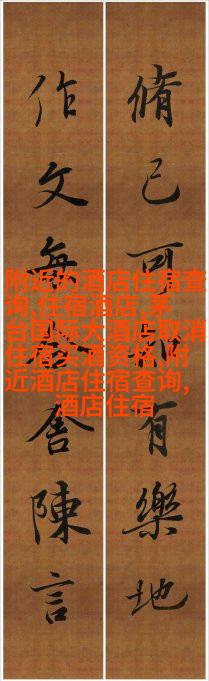 脩己可有樂地
作文無舍陳言
附近的酒店住宿查
询,住宿酒店,茅
台国际大酒店取消
住宿买酒资格,附
近酒店住宿查询,
酒店住宿